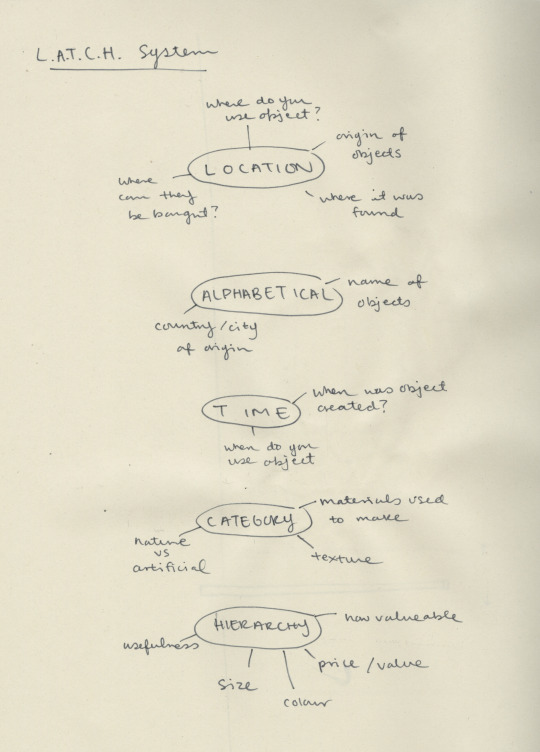 L.A.T.C.H. System
where do you
use object?
origin of
objects
LOCATION
where
can they
be bought?
where it was
found
name of
objects
ALPHABETICAL
country/city
of origin
when was object
created?
TIME
when do you
use object
materials used
to make
CATEGORY
nature
vs
artificial
texture
how valueable
HIERARCHY
usefulness
price/value
size
colour